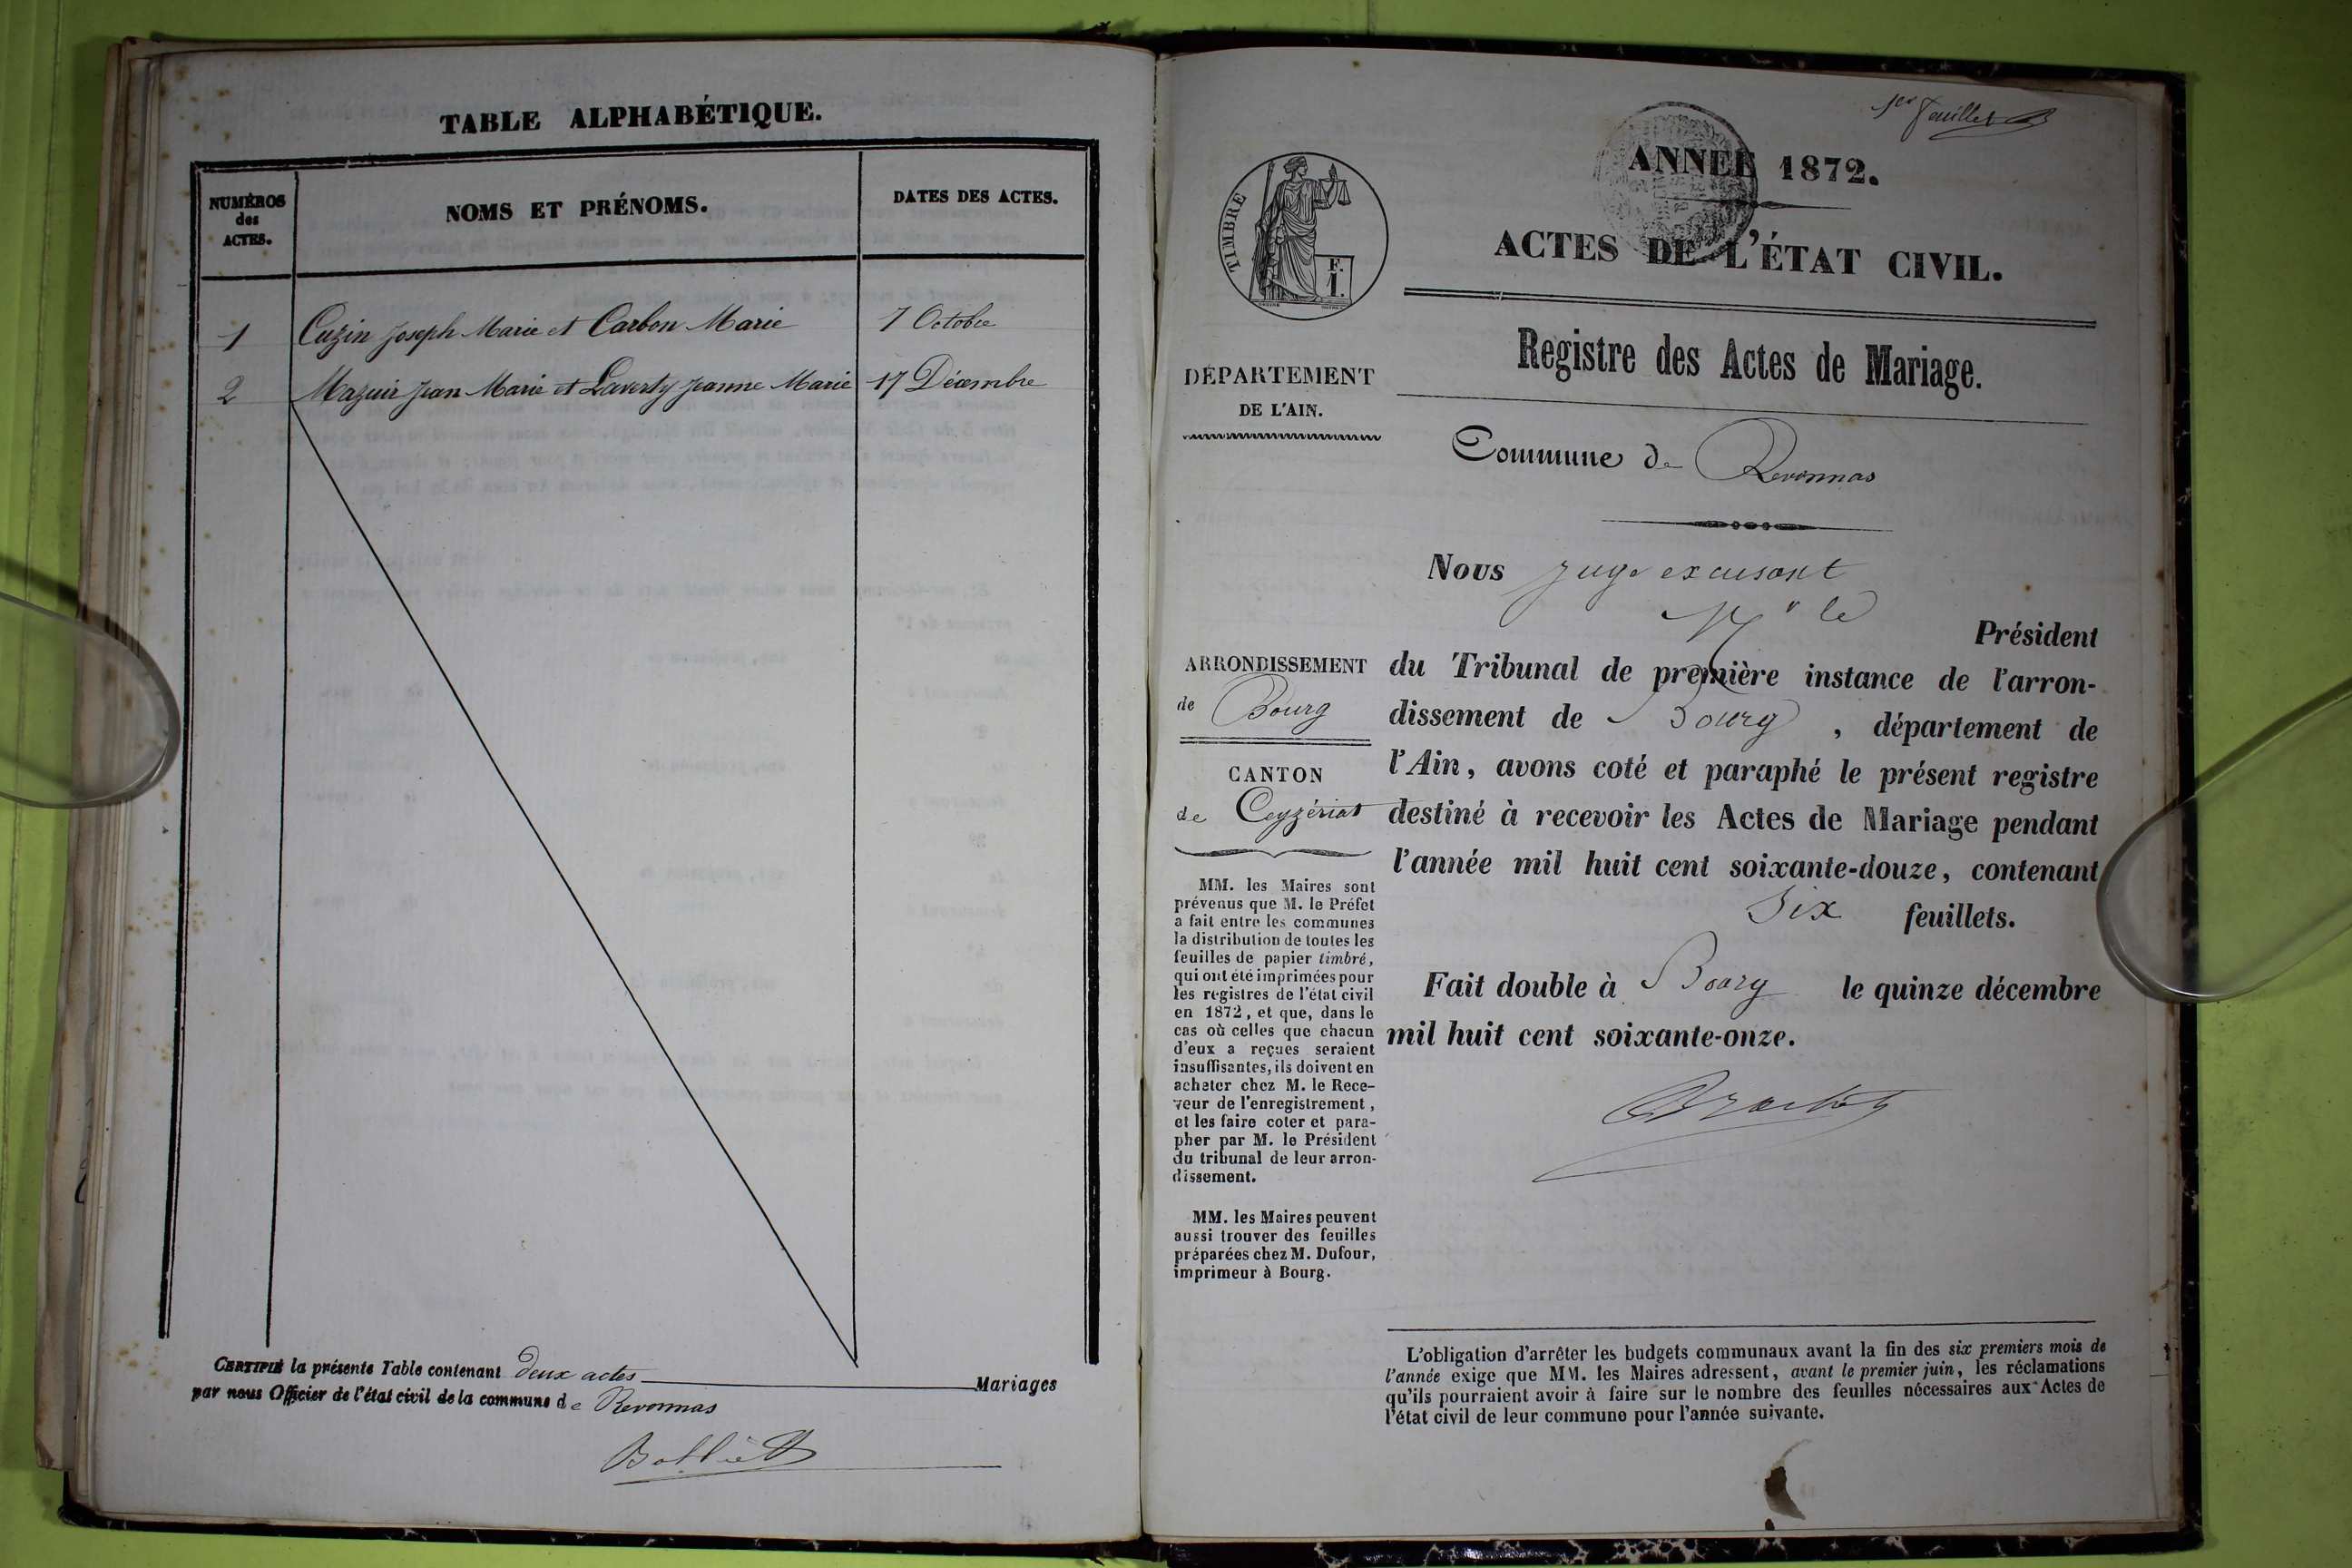 TABLE ALPHABÉTIQUE.
NUMÉROS
des
ACTES.
NOMS ET PRÉNOMS.
DATES DES ACTES.
1 Cuzin Joseph Marie et Carbon Marie 7 Octobre
2 Mazuir Jean Marie et Laverty Jeanne Marie 17 Décembre
CERTIFIÉ la présente Table contenant deux actes Mariages
par nous Officier de l'état civil de la commune de Revonnas
1er feuillet
ANNEE 1872.
ACTES DE L'ÉTAT CIVIL.
TIMBRE
F.
1.
Registre des Actes de Mariage.
DÉPARTEMENT
DE L'AIN.
Commune de Revonnas
Nous juge excusant
Mr le
Président
ARRONDISSEMENT
de Bourg
CANTON
de Ceyzériat
du Tribunal de première instance de l'arron-
dissement de Bourg, département de
l'Ain, avons coté et paraphé le présent registre
destiné à recevoir les Actes de Mariage pendant
l'année mil huit cent soixante-douze, contenant
Six feuillets.
Fait double à Bourg le quinze décembre
mil huit cent soixante-onze.
MM. les Maires sont
prévenus que M. le Préfet
a fait entre les communes
la distribution de toutes les
feuilles de papier timbré,
qui ont été imprimées pour
les registres de l'état civil
en 1872, et que, dans le
cas où celles que chacun
d'eux a reçues seraient
insuffisantes, ils doivent en
acheter chez M. le Rece-
veur de l'enregistrement,
et les faire coter et para-
pher par M. le Président
du tribunal de leur arron-
dissement.
MM. les Maires peuvent
aussi trouver des feuilles
préparées chez M. Dufour,
imprimeur à Bourg.
L'obligation d'arrêter les budgets communaux avant la fin des six premiers mois de
l'année exige que MM. les Maires adressent, avant le premier juin, les réclamations
qu'ils pourraient avoir à faire sur le nombre des feuilles nécessaires aux Actes de
l'état civil de leur commune pour l'année suivante.